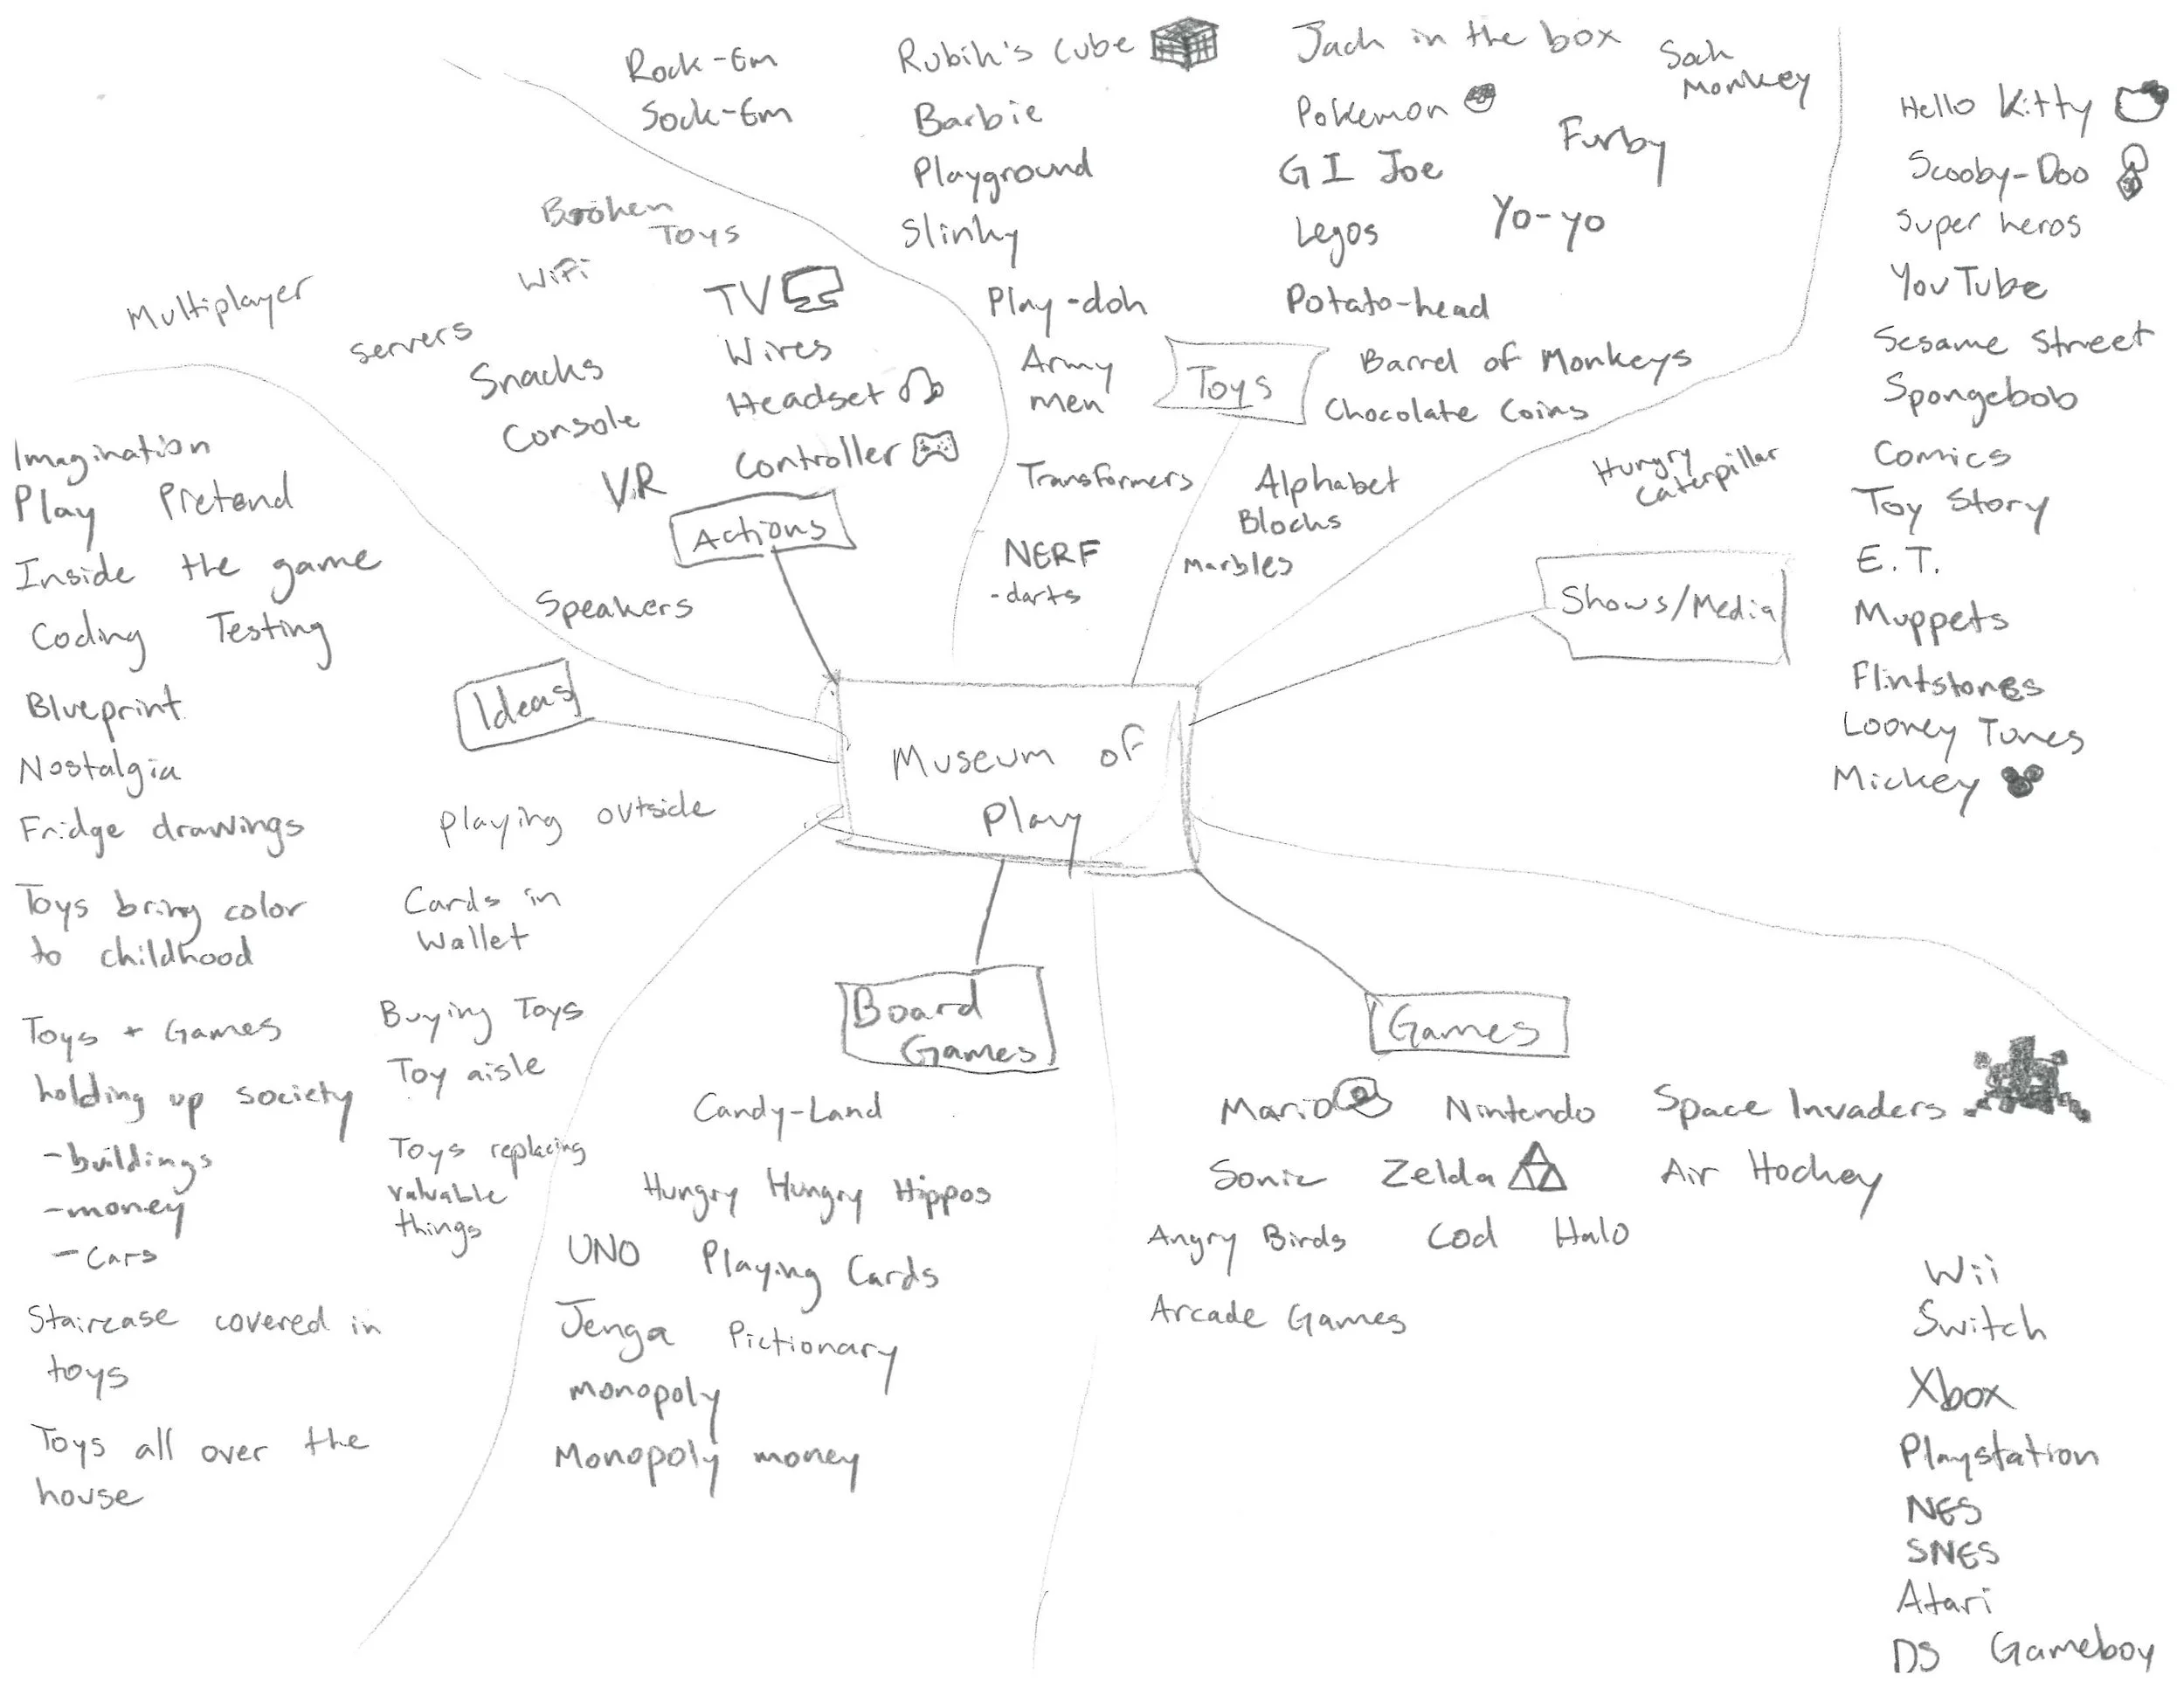 Museum of
Play
Toys
Rock-Em
Sock-Em
Rubik's Cube
Barbie
Playground
Slinky
Play-doh
Army
men
Transformers
NERF
-darts
Jack in the box
Pokemon
GI Joe
Legos
Potato-head
Sock
Monkey
Furby
Yo-yo
Barrel of Monkeys
Chocolate Coins
Alphabet
Blocks
Marbles
Shows/Media
Hello Kitty
Scooby-Doo
Super heros
YouTube
Sesame Street
Spongebob
Comics
Toy Story
E.T.
Muppets
Flintstones
Looney Tunes
Mickey
Hungry
Caterpillar
Games
Mario Nintendo Space Invaders
Sonic Zelda Air Hockey
Angry Birds Cod Halo
Arcade Games
Wii
Switch
Xbox
Playstation
NES
SNES
Atari
DS Gameboy
Board
Games
Candy-Land
Hungry Hungry Hippos
UNO Playing Cards
Jenga Pictionary
Monopoly
Monopoly money
Ideas
Imagination
Play Pretend
Inside the game
Coding Testing
Blueprint
Nostalgia
Fridge drawings
Toys bring color
to childhood
Toys + Games
holding up society
-buildings
-money
-Cars
Staircase covered in
toys
Toys all over the
house
Playing outside
Cards in
Wallet
Buying Toys
Toy aisle
Toys replacing
valuable
things
Actions
Multiplayer
Servers
Broken
Toys
WiFi
Snacks
Console
VR
TV
Wires
Headset
Controller
Speakers